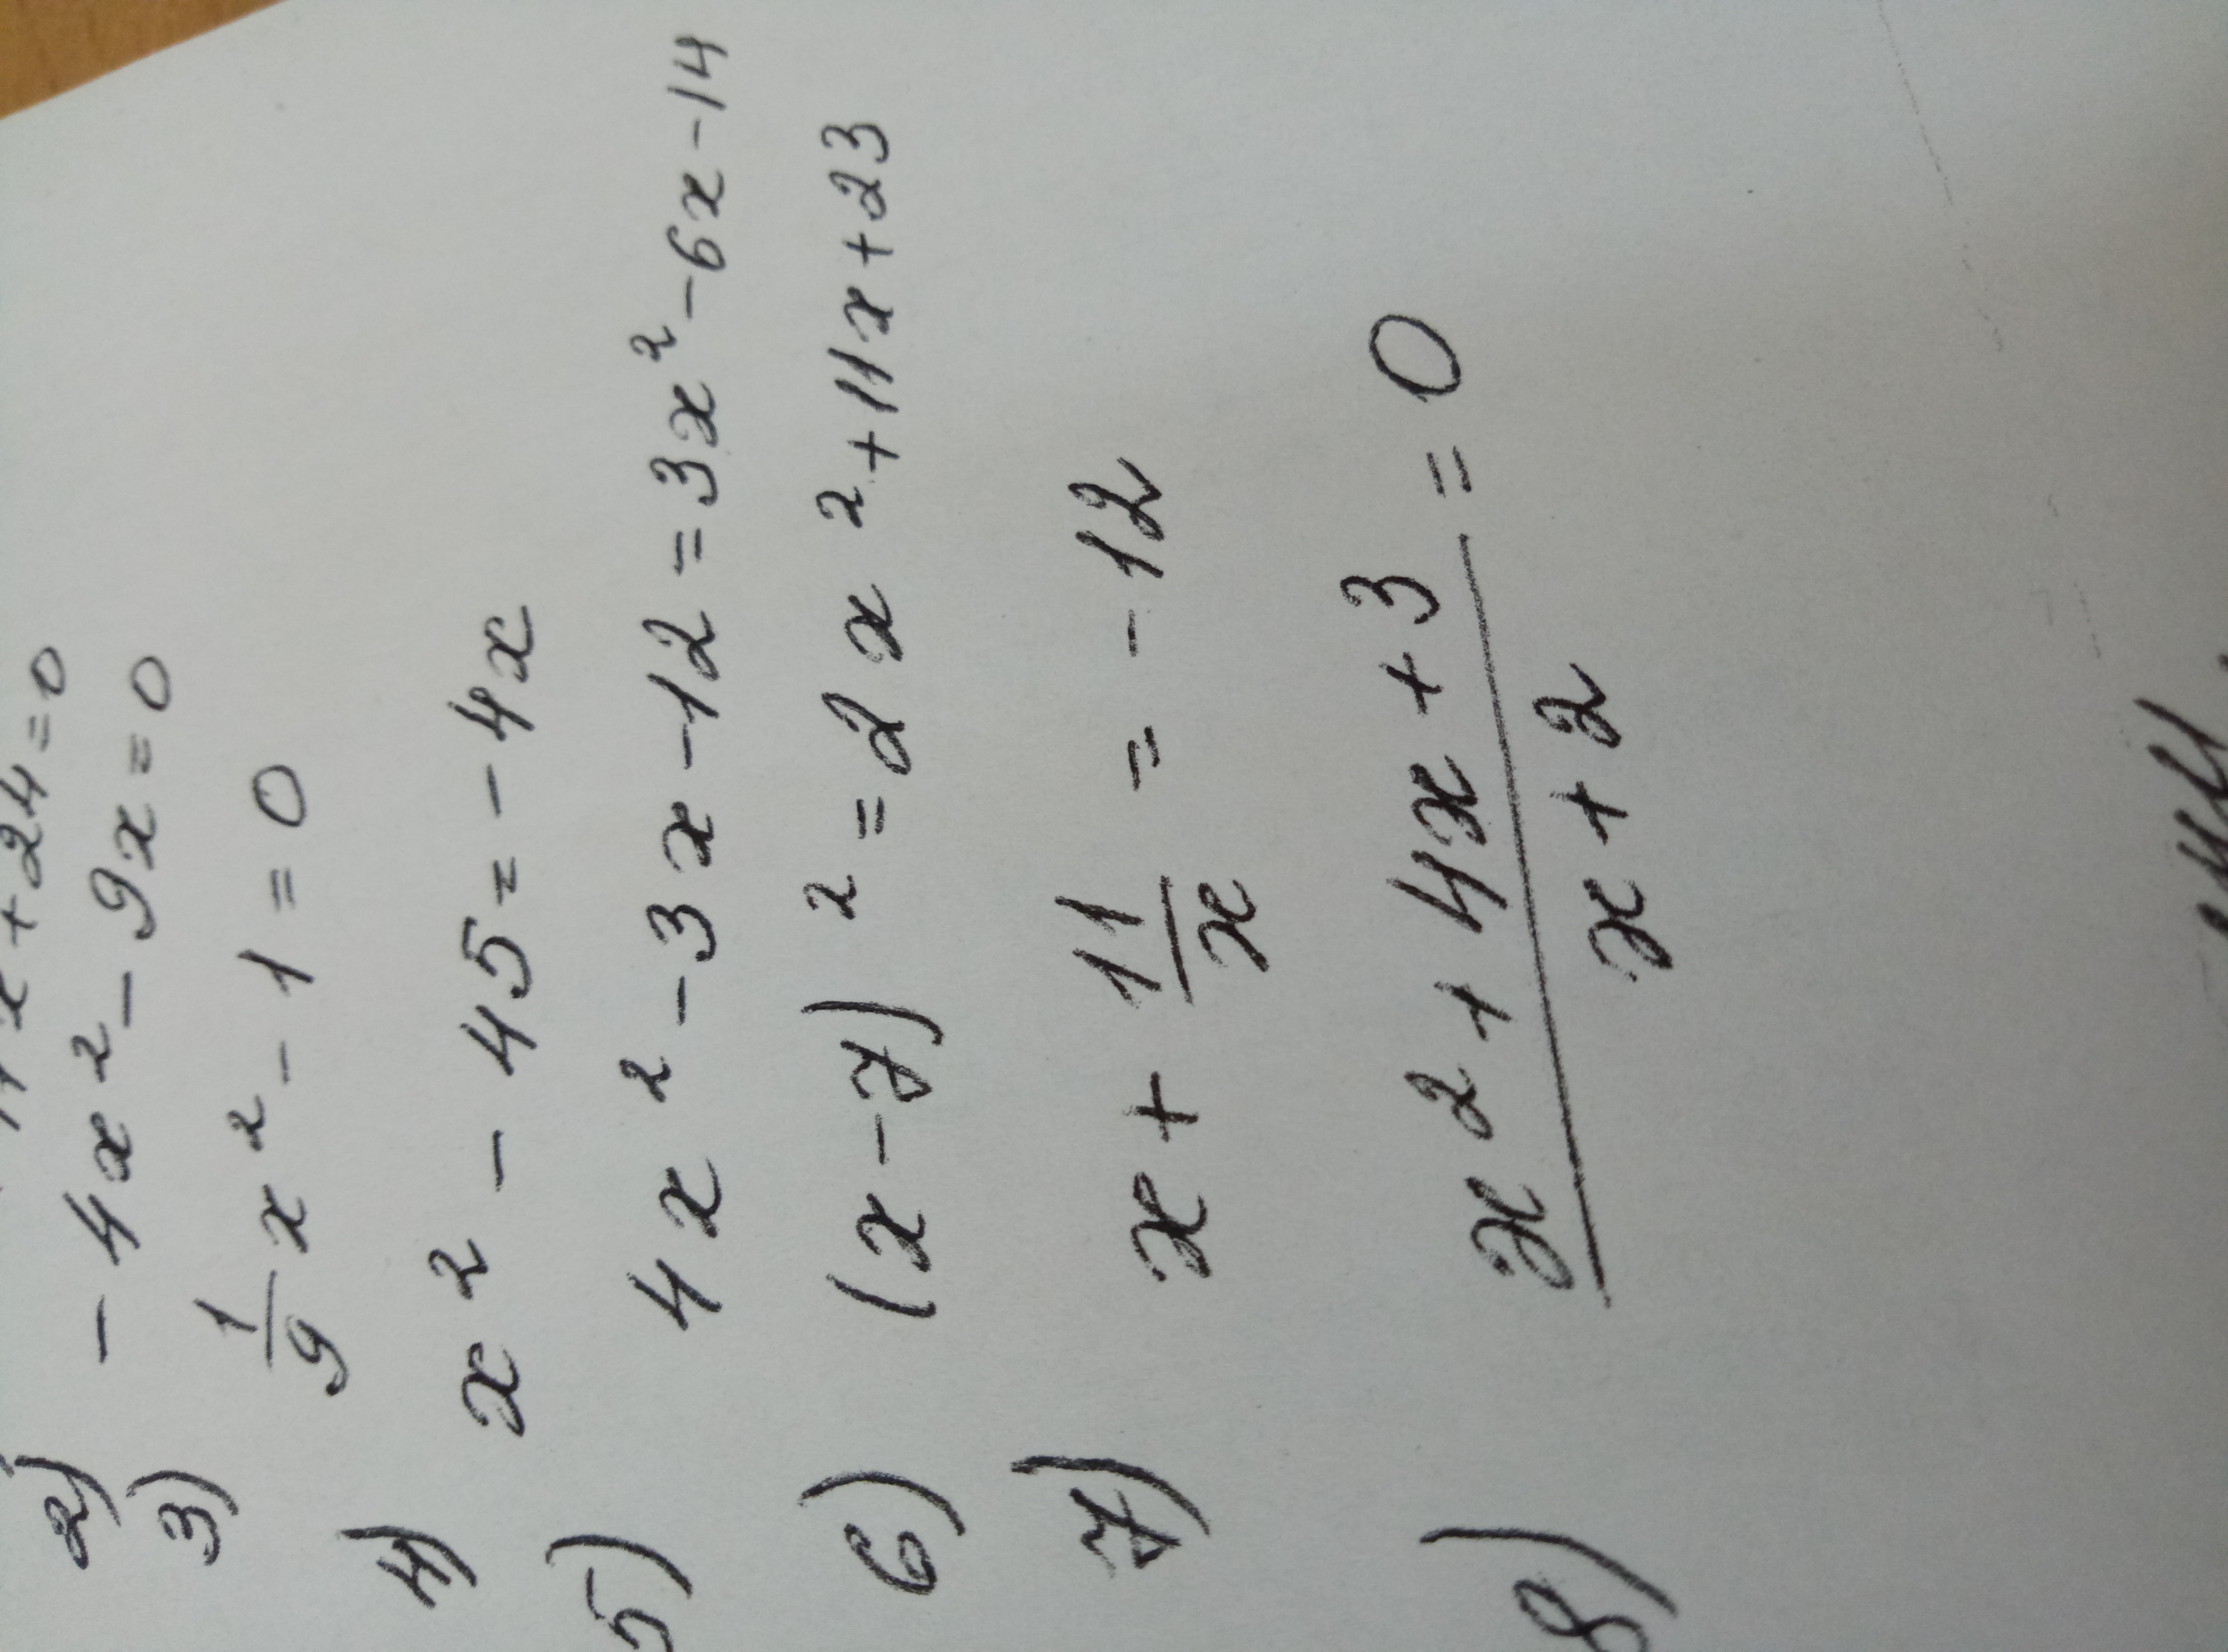 x + 24 = 0
2) - 4x² - 9x = 0
3) 1/9 x² - 1 = 0
4) x² - 45 = - 4x
5) 4x² - 3x - 12 = 3x² - 6x - 14
6) (x - 7)² = 2x² + 11x + 23
7) x + 11/x = - 12
8) (x² + 4x + 3)/(x + 2) = 0